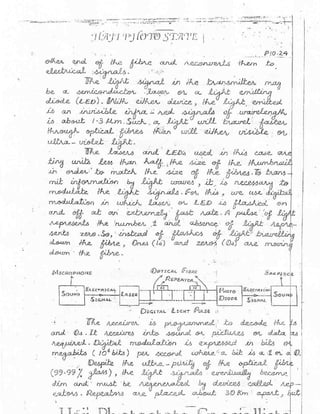 HAJI PHOTO STATE
P10-24
other end of the fibre and reconverts them to
electrical signals.
The light signal in the transmitter may
be a semiconductor laser or a light emitting
diode (LED). With either device, the light emitted
is an invisible infra-red signals of wavelength
is about 1-3 μm. Such a light will travel faster
through optical fibres than will either visible or
ultra-violet light.
The lasers and LEDs used in this case are
tiny units less than half the size of the thumbnail
in order to match the size of the fibres. To trans-
mit information by light waves, it is necessary to
modulate the light signals. For this, we use digital
modulation in which laser or LED is flashed on
and off at an extremely fast rate. A pulse of light
represents the number 1 and absence of light repre-
sents zero. So, instead of flashes of light travelling
down the fibre, Ones (1s) and zeros (0s) are moving
down the fibre.
MICROPHONE
OPTICAL FIBRE
REPEATER
SOUND
ELECTRICAL
SIGNAL
LASER
PHOTO
DIODE
ELECTRICAL
SIGNAL
SOUND
DIGITAL LIGHT PULSE
The receiver is programmed to decode the 1s
and 0s. It receives into sound or pictures or data as
required. Digital modulation is expressed in bits or
megabits (10⁶ bits) per second where a bit is a 1 or a 0.
Despite the ultra-purity of the optical fibre
(99.99% glass), the light signals eventually become
dim and must be regenerated by devices called rep-
eators. Repeators are placed about 30 km apart, but